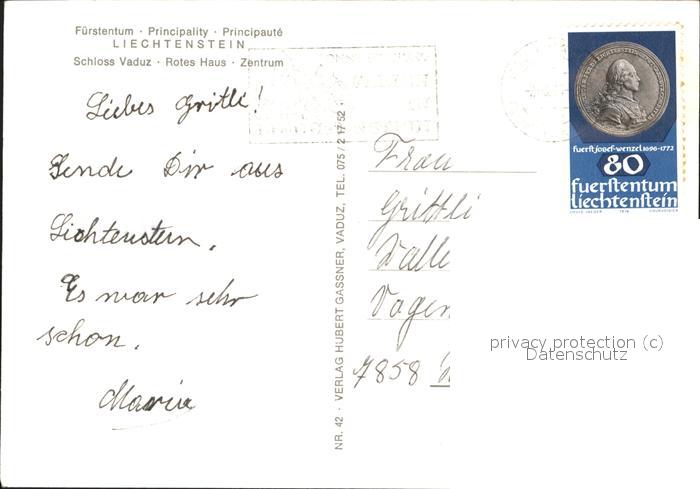 Fürstentum · Principality · Principauté
LIECHTENSTEIN
Schloss Vaduz · Rotes Haus · Zentrum
Liebes Gritli!
Sende Dir aus
Lichtenstern.
Es war sehr
schon.
Maria
NR. 42 · VERLAG HUBERT GASSNER, VADUZ, TEL. 075 / 2 17 52
Frau
Grittli
Walle
Vogen
7858
fuerst josef-wenzel 1696-1772
80
fuerstentum
liechtenstein
privacy protection (c)
Datenschutz